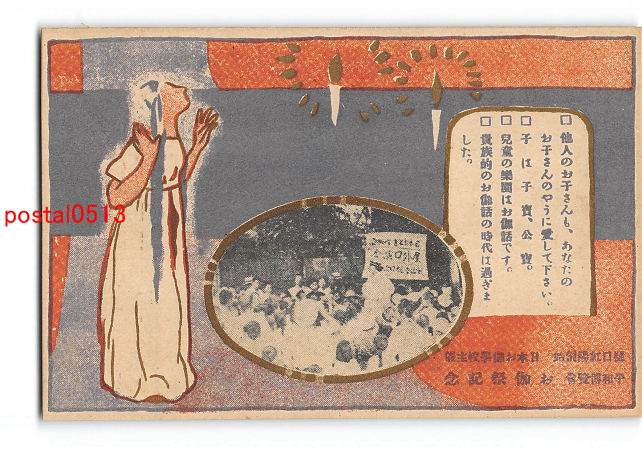 □ 他人のお子さんも、あなたの
お子さんのやうに愛して下さい。
□ 子は子寶、公寶。
□ 兒童の樂園はお伽話です。
□ 貴族的のお伽話の時代は過ぎま
した。
日本お伽學校主催
平和博覽會 お伽祭記念
postal0513